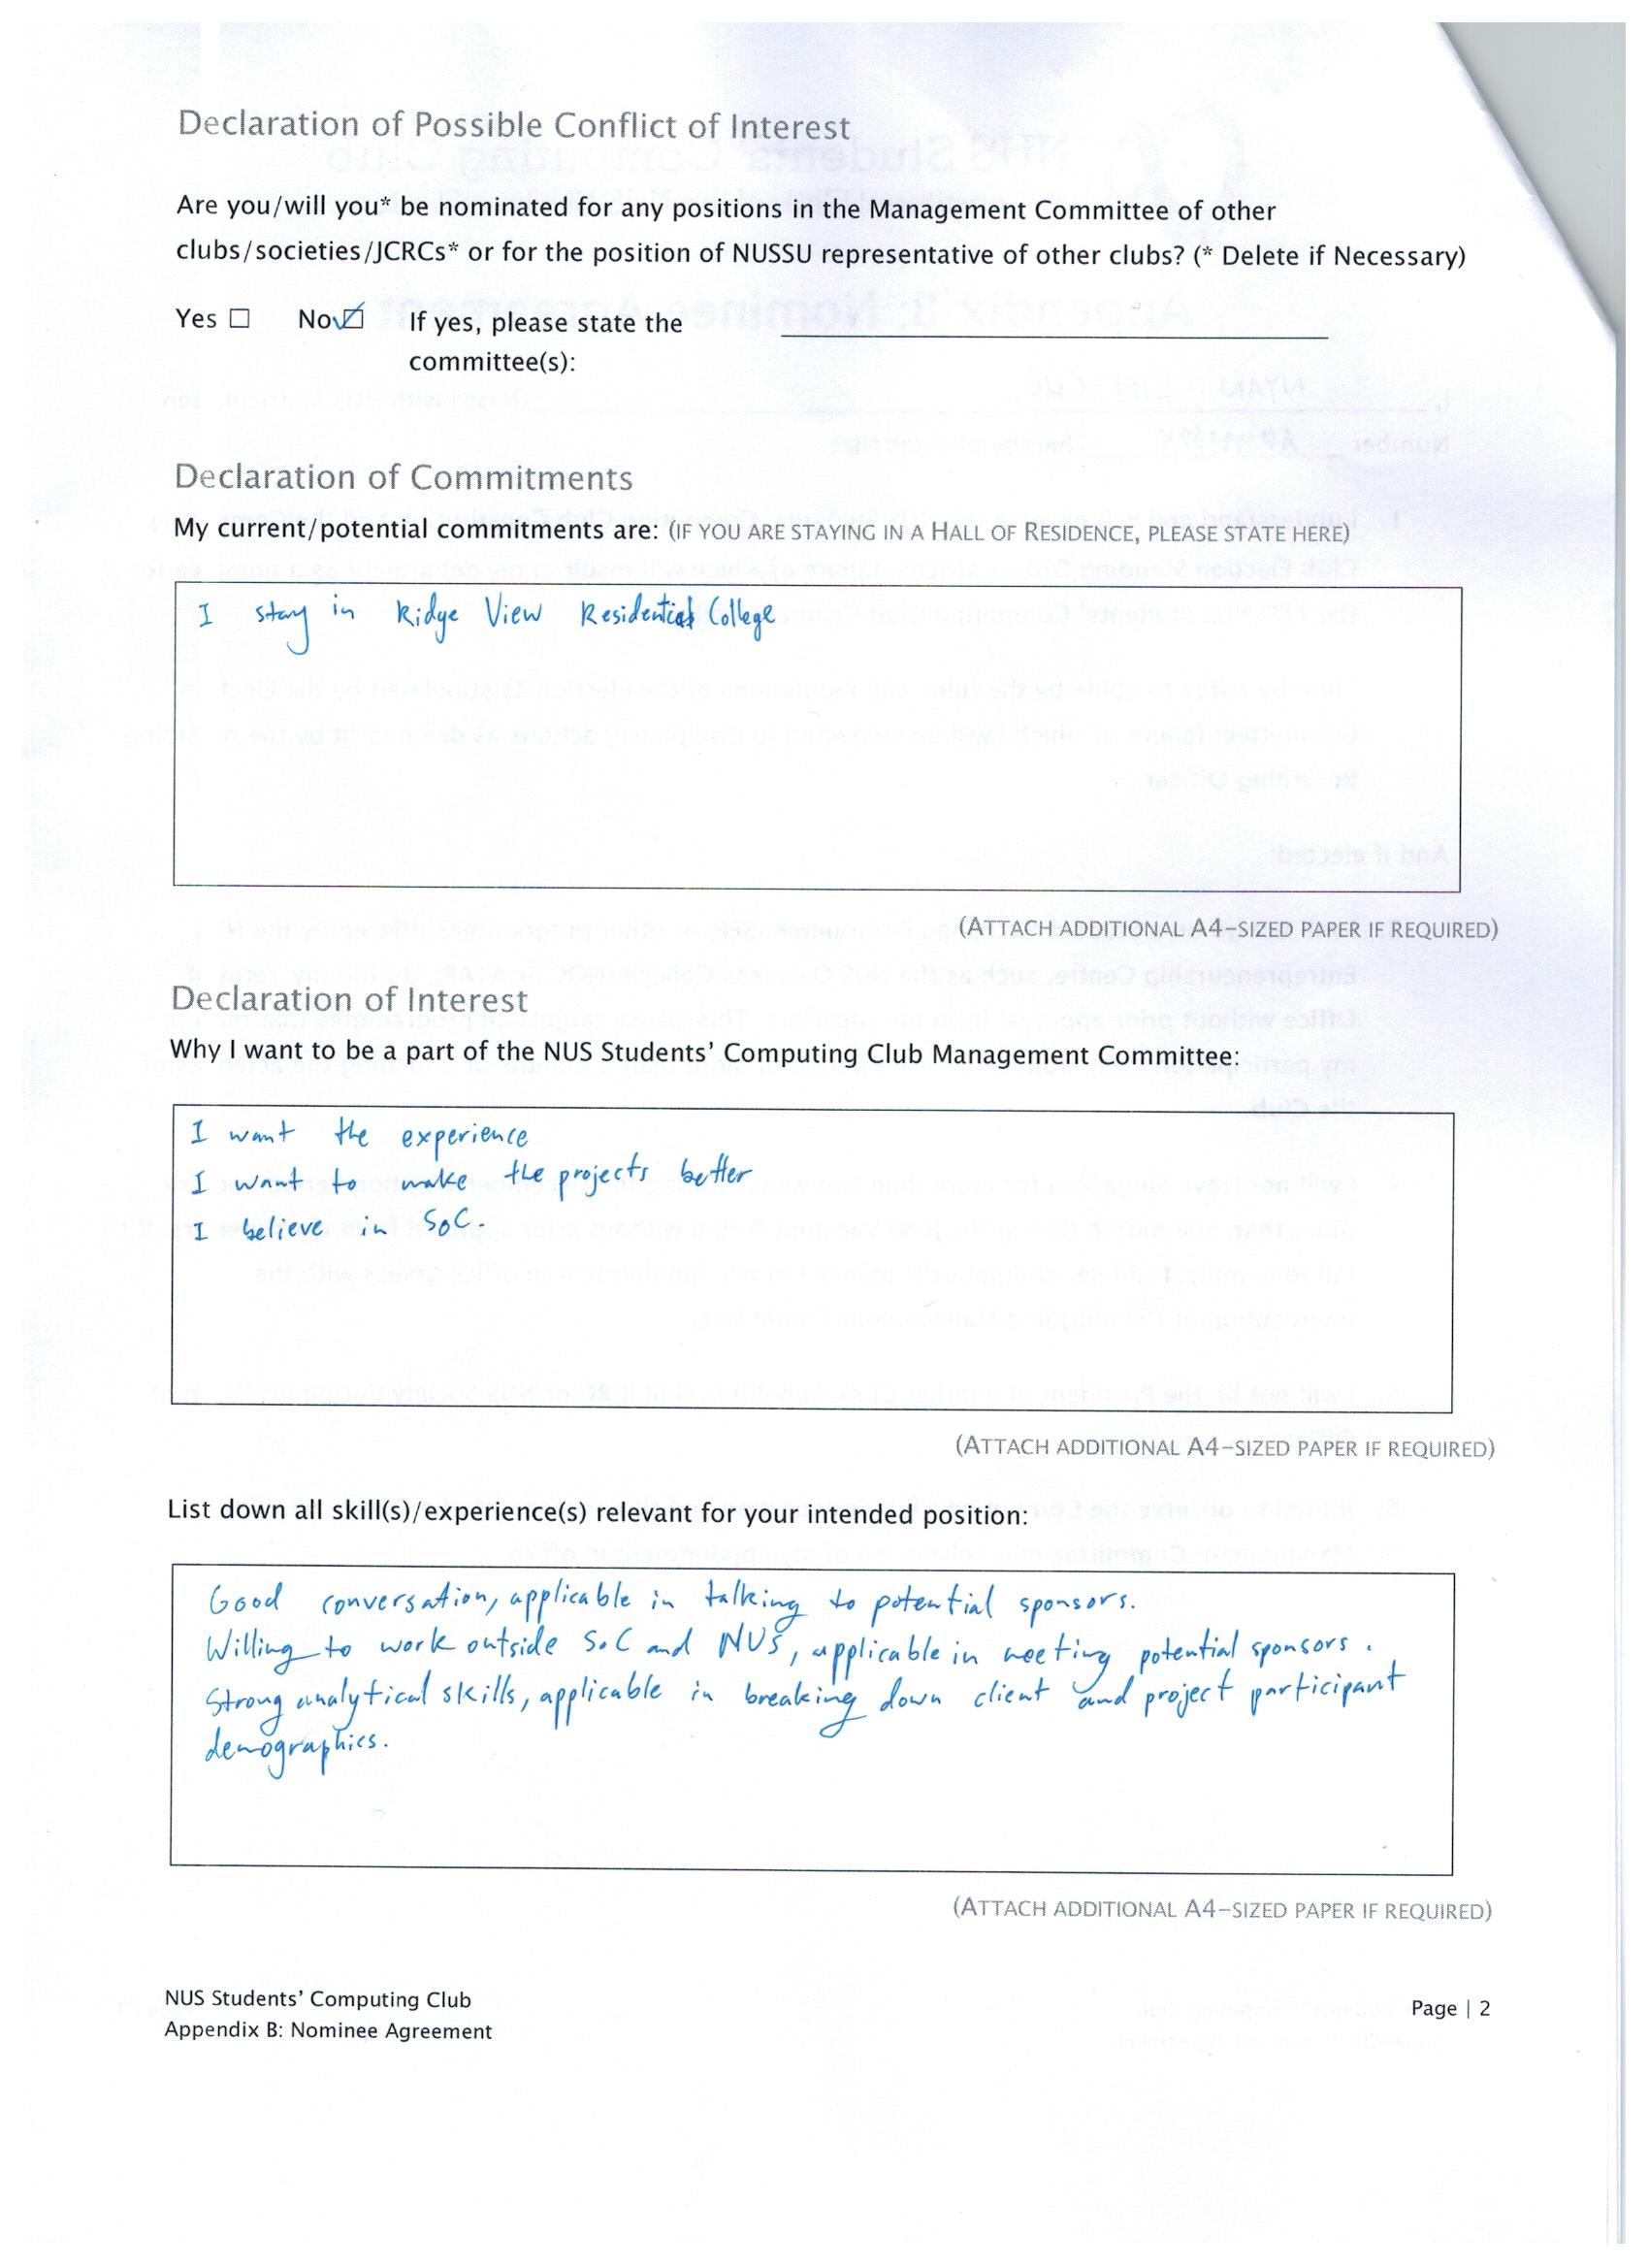 Declaration of Possible Conflict of Interest
Are you/will you* be nominated for any positions in the Management Committee of other
clubs/societies/JCRCs* or for the position of NUSSU representative of other clubs? (* Delete if Necessary)
Yes ☐ No ☑ If yes, please state the
committee(s):
Declaration of Commitments
My current/potential commitments are: (IF YOU ARE STAYING IN A HALL OF RESIDENCE, PLEASE STATE HERE)
I stay in Ridge View Residential College
(ATTACH ADDITIONAL A4-SIZED PAPER IF REQUIRED)
Declaration of Interest
Why I want to be a part of the NUS Students' Computing Club Management Committee:
I want the experience
I want to make the projects better
I believe in SoC.
(ATTACH ADDITIONAL A4-SIZED PAPER IF REQUIRED)
List down all skill(s)/experience(s) relevant for your intended position:
Good conversation, applicable in talking to potential sponsors.
Willing to work outside SoC and NUS, applicable in meeting potential sponsors.
Strong analytical skills, applicable in breaking down client and project participant
demographics.
(ATTACH ADDITIONAL A4-SIZED PAPER IF REQUIRED)
NUS Students' Computing Club
Page | 2
Appendix B: Nominee Agreement